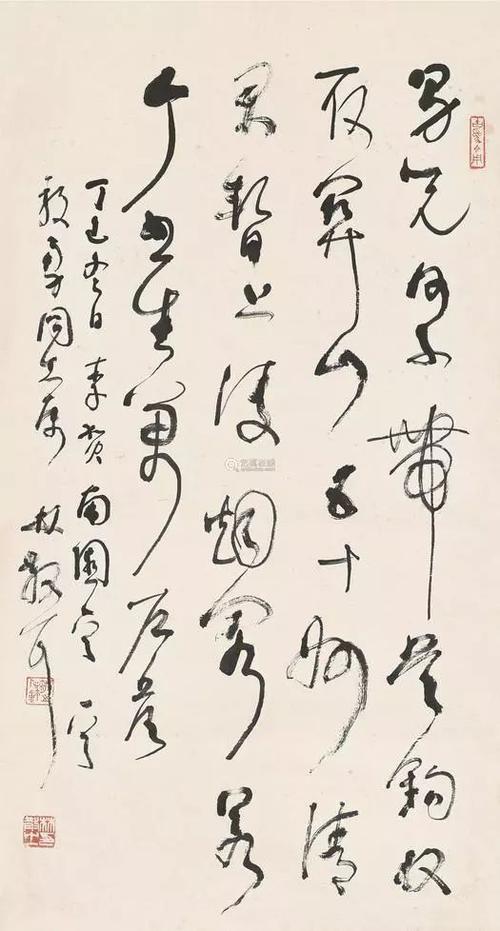 男兒何不帶吳鉤收
取關山五十州請
君暫上凌烟閣若
个書生萬戶侯
丁巳冬日李賀南園
同志屬 林散耳